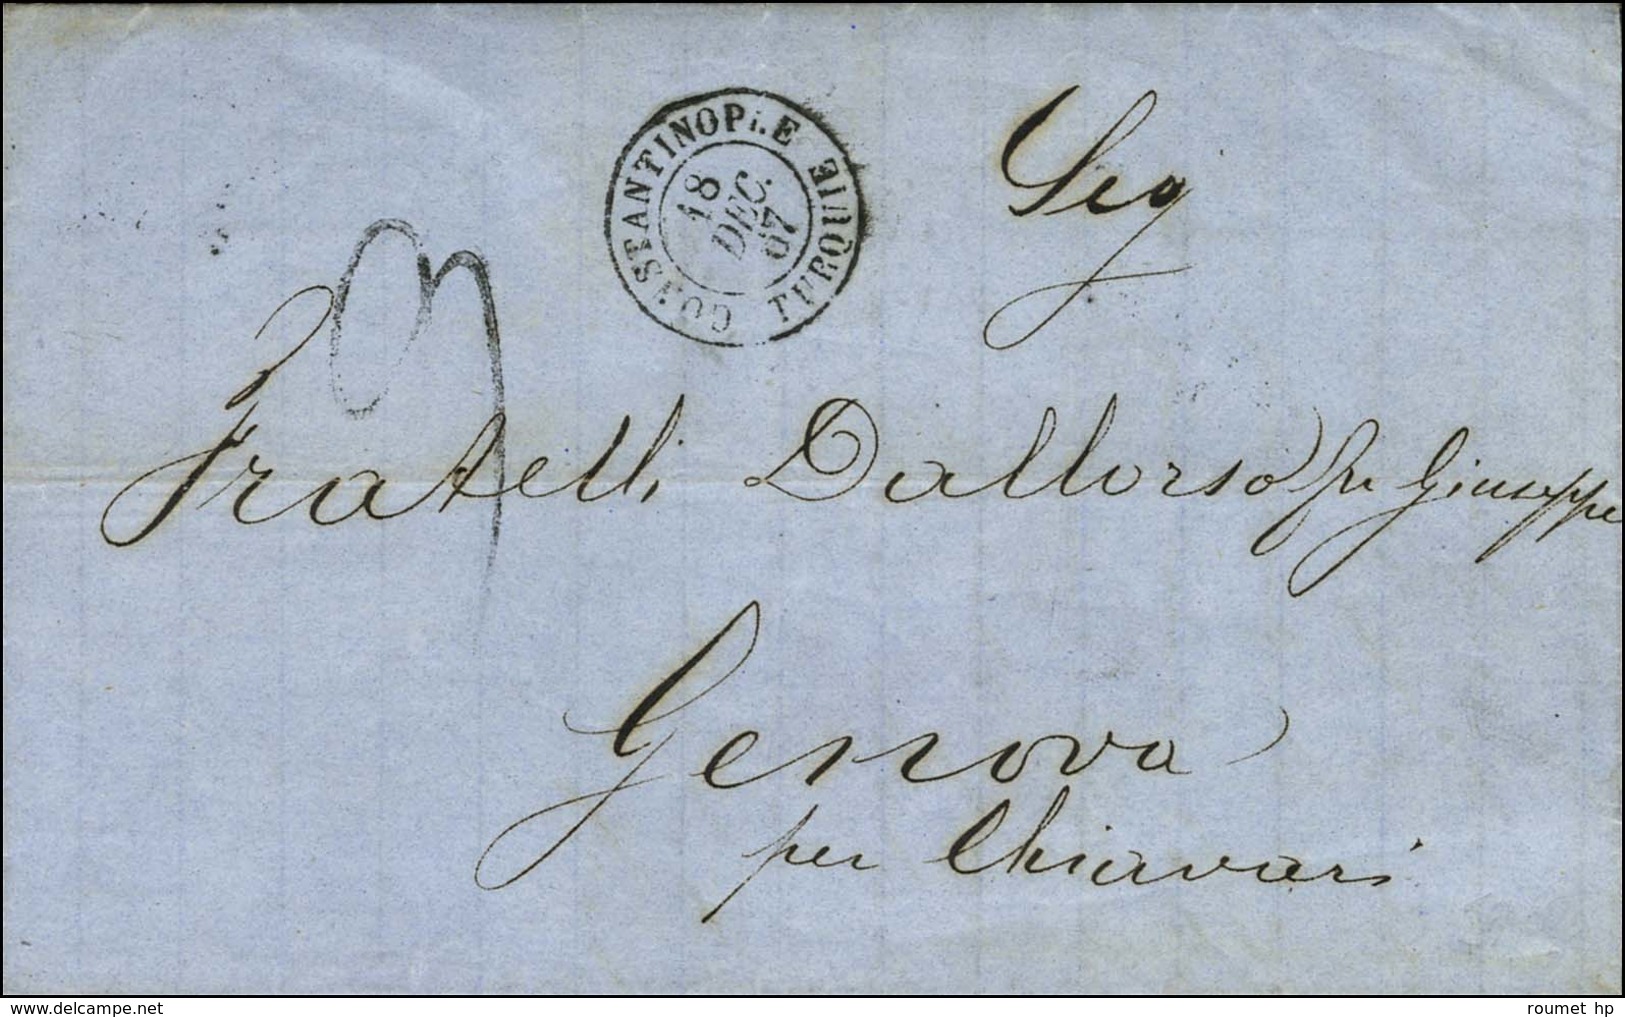 CONSTANTINOPLE TURQUIE
18
DEC.
67
Sig
Fratelli Dallorso fu Giuseppe
Genova
per Chiavari
roumet hp